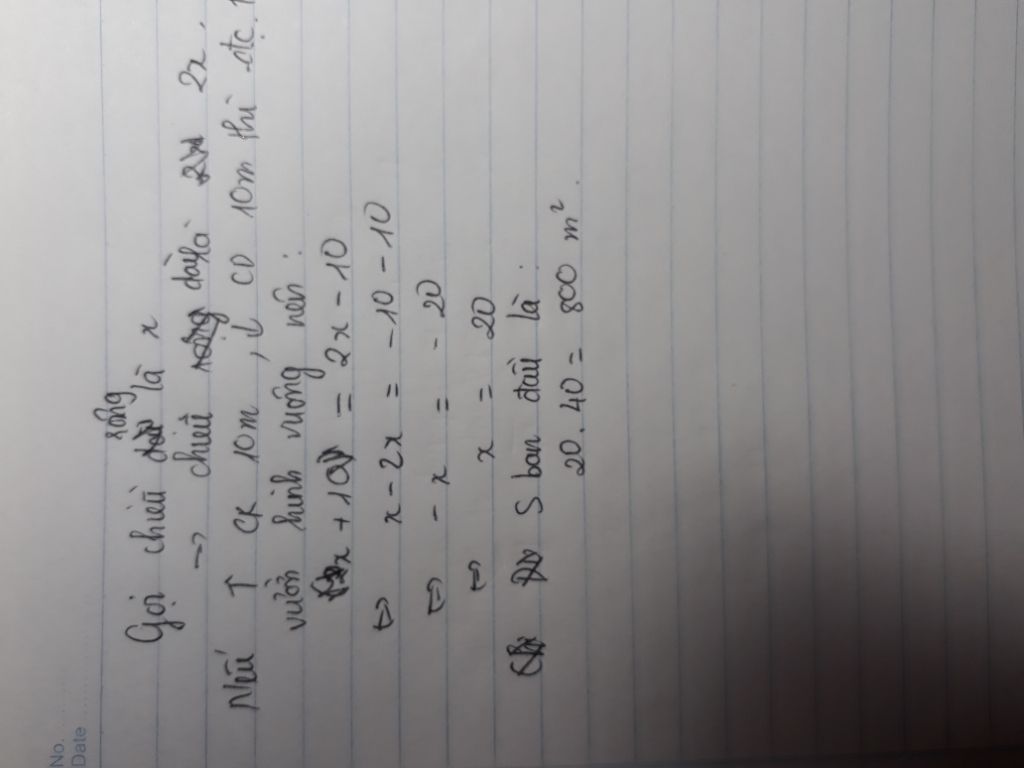 No.
Date
Gọi chiều rộng là x
→ chiều dài là 2x.
Nếu ↑ CR 10m, ↓ CD 10m thì đtc
vườn hình vuông nên:
x + 10 = 2x - 10
⇔ x - 2x = -10 - 10
⇔ - x = - 20
⇔ x = 20
S ban đầu là:
20.40 = 800 m².